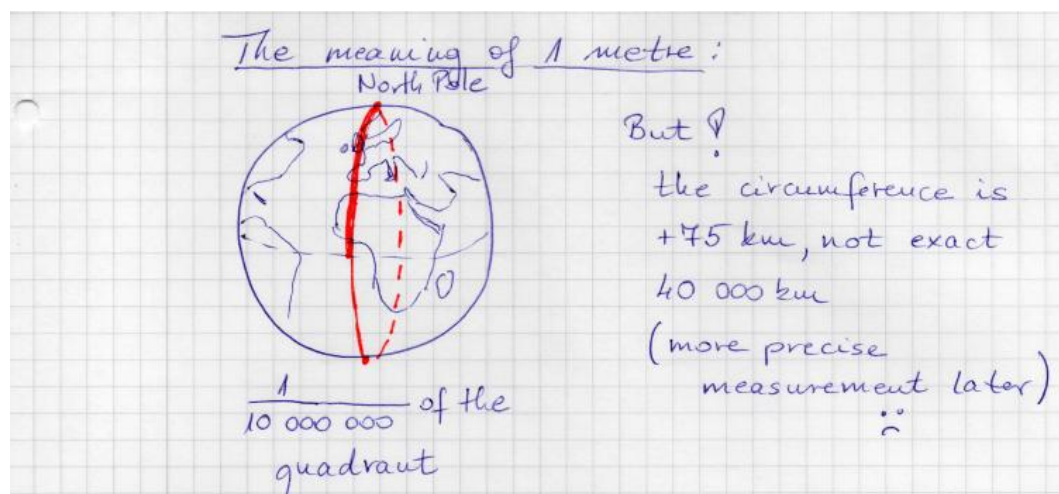 The meaning of 1 metre:
North Pole
1
10 000 000 of the
quadrant
But !
the circumference is
+75 km, not exact
40 000 km
(more precise
measurement later)